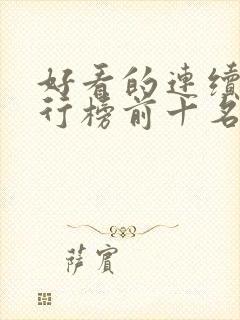 好看的連續
行榜前十名
薩賓